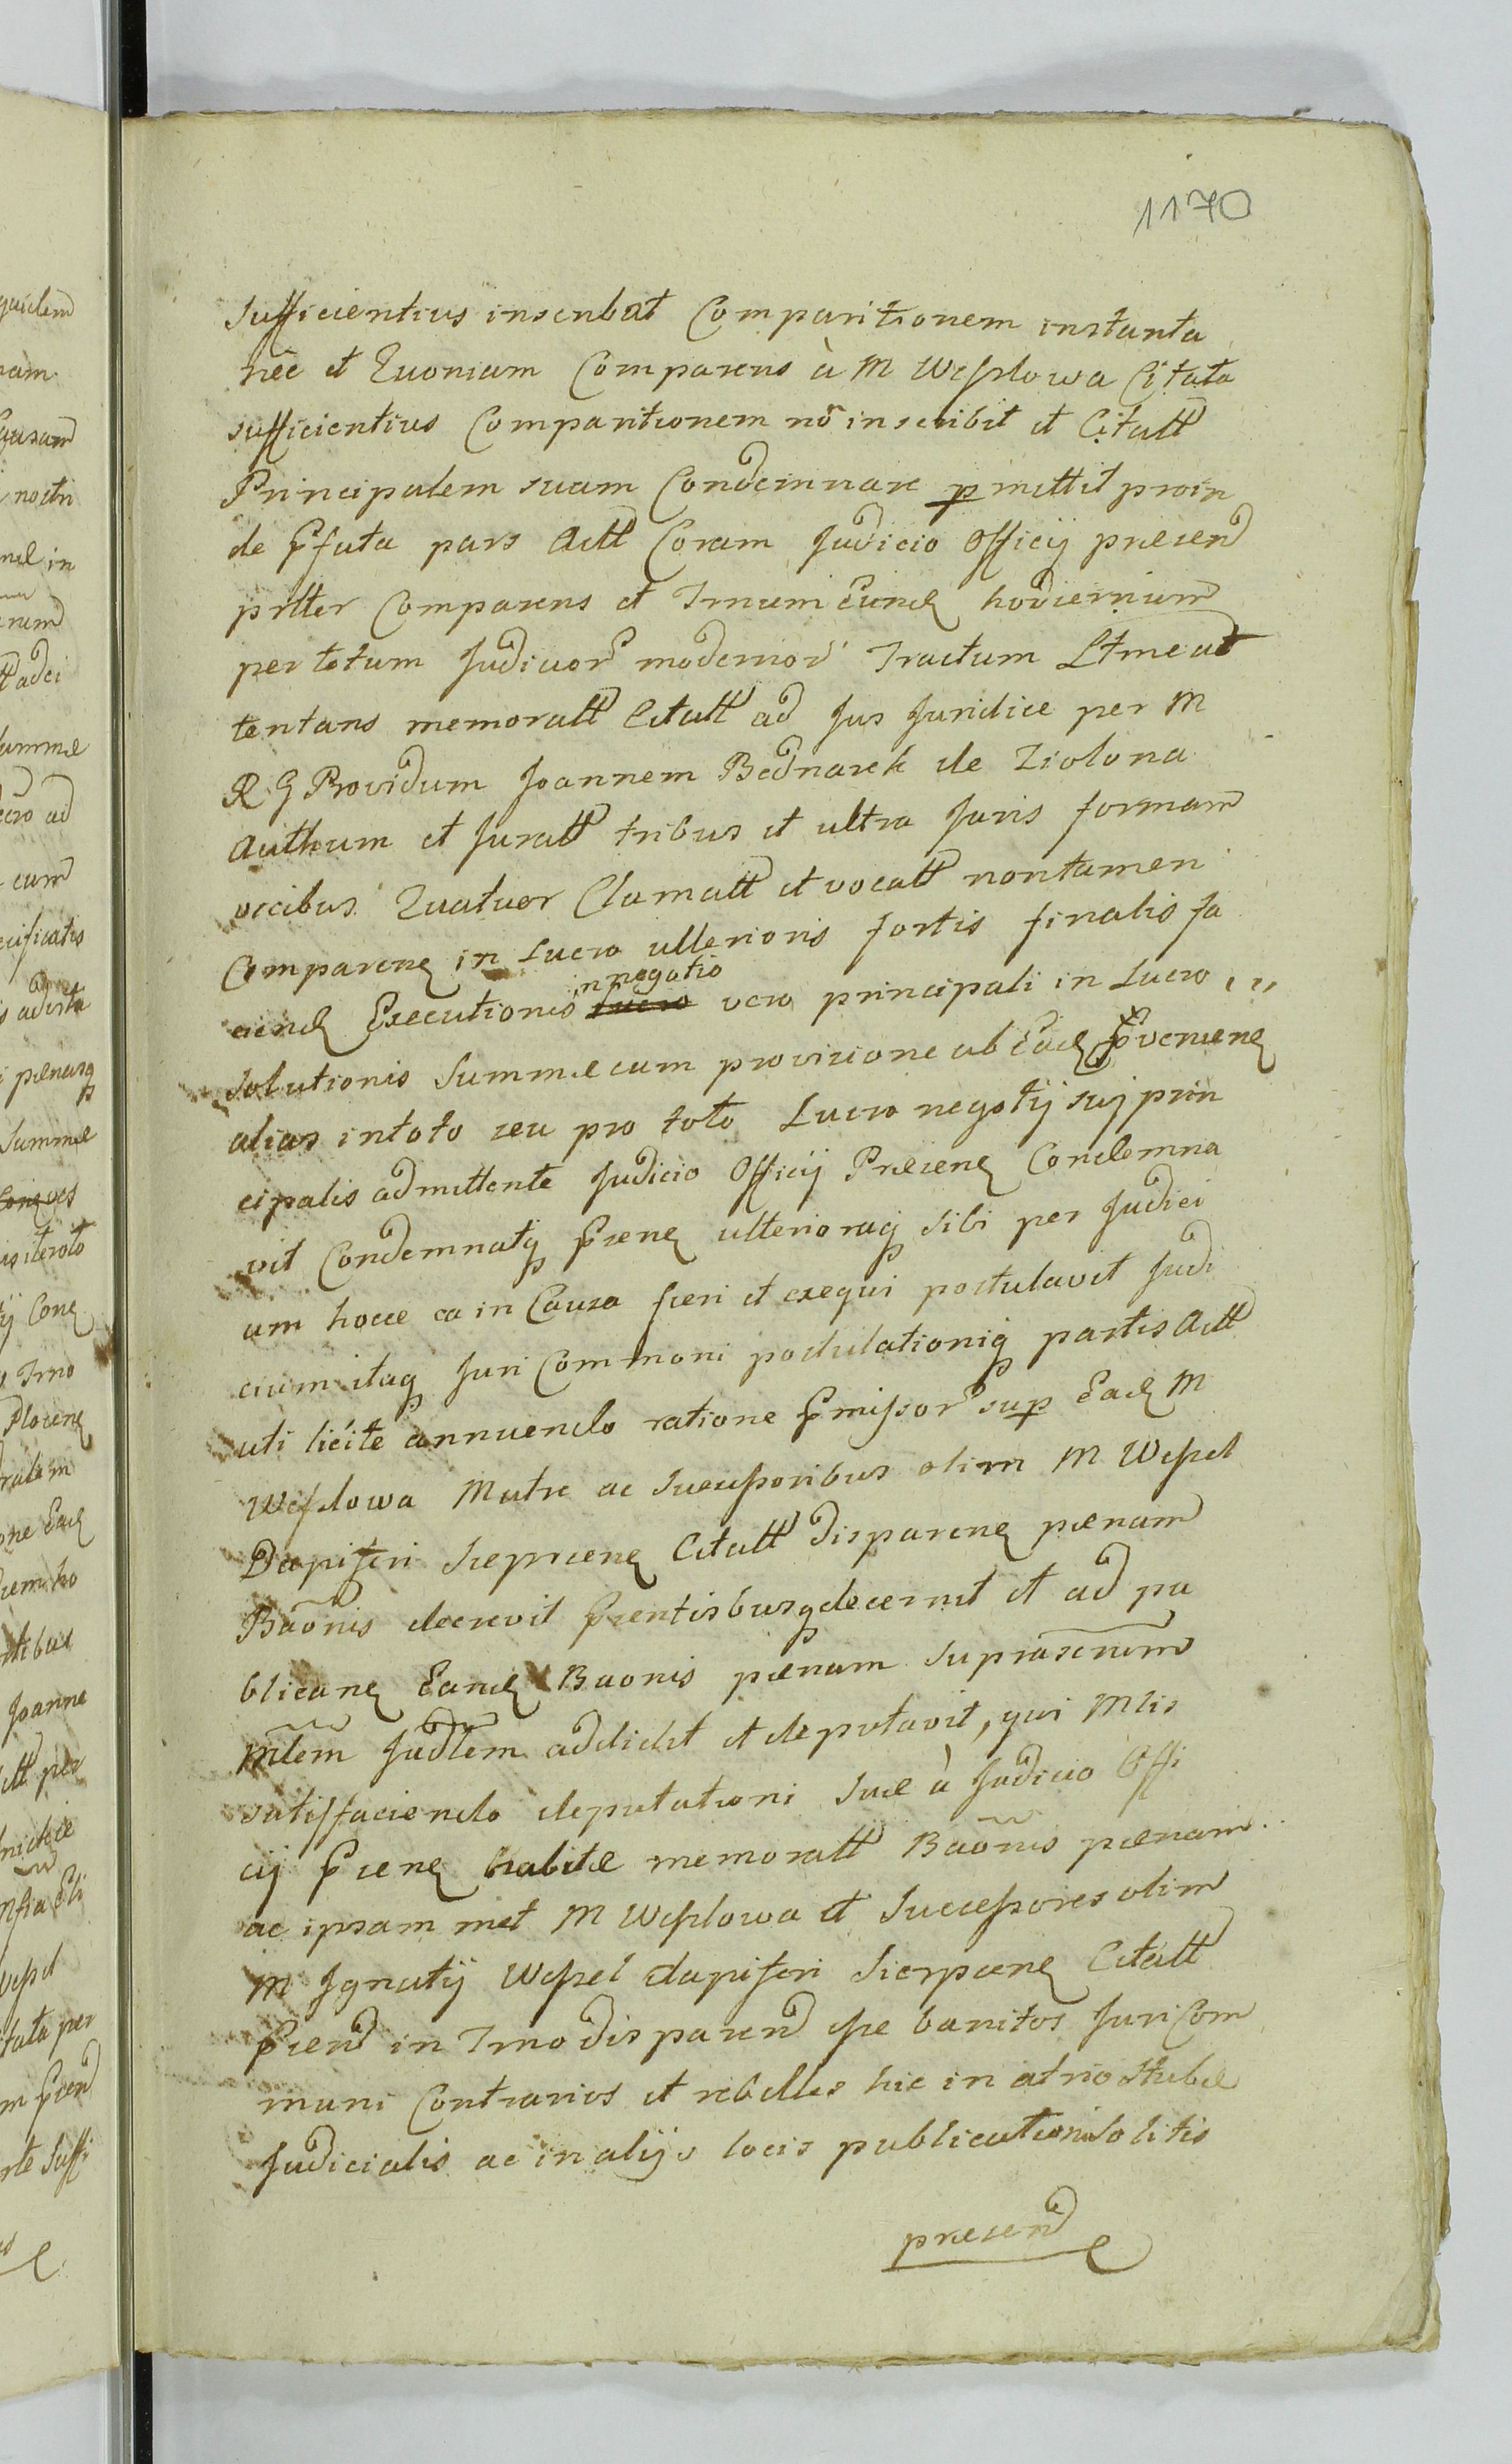 1170
Sufficientius inscribat Comparitionem instanta
nee et Quoniam Comparens à M Wesslowa Citata
sufficientius Comparitionem nō inscribit et Citatt
Principalem suam Condemnare pmittit proin
de Pfata pars Actt Coram Judicio Officij presend
pttler Comparens et Trnum Eund hodiernum
per totum Judicior modernor Tractum Ltme at
tentans memoratt Citatt ad Jus Juridice per M
R G Providum Joannem Bednarek de Ziolona
Authum et Juratt tribus et ultra Juris formam
vicibus Quatuor Clamatt et vocatt non tamen
Comparen in Lucro ulterioris fortis finalis fa
ciend Executionis in negotio vero principali in Lucro
Solutionis Summæ cum provisione ab Ead Pvenien
alias in toto seu pro toto Lucro negotij suj prin
cipalis admittente Judicio Officij Presen Condemna
vit Condemnatq Psen ulterioraq sibi per Judici
um hocce ea in Causa fieri et exequi postulavit Judi
cium itaq Juri Communi postulationiq partis Actt
uti licite annuendo ratione Pmissor sup Ead M
Wesslowa Matre ac Successoribus olim M Wessel
Dapiferi Sieprcen Citatt disparen pœnam
Bāonis decrevit Psentisbusq decernit et ad pu
blican Eand Baonis pœnam suprascrum
Mlem Judlem addidit et deputavit, qui Mlis
satisfaciendo deputationi suæ à Judicio Offi
cij Psen habitæ memoratt Bāonis pœnam
ac ipsam met M Wesslowa et Successores olim
M Ignatij Wessel dapiferi Sierpcen Citatt
Psend in Trno disparend esse banitos Juri Com
muni Contrarios et rebelles hic in atrio Stubæ
Judicialis ac in alijs locis publicationi solitis
presend